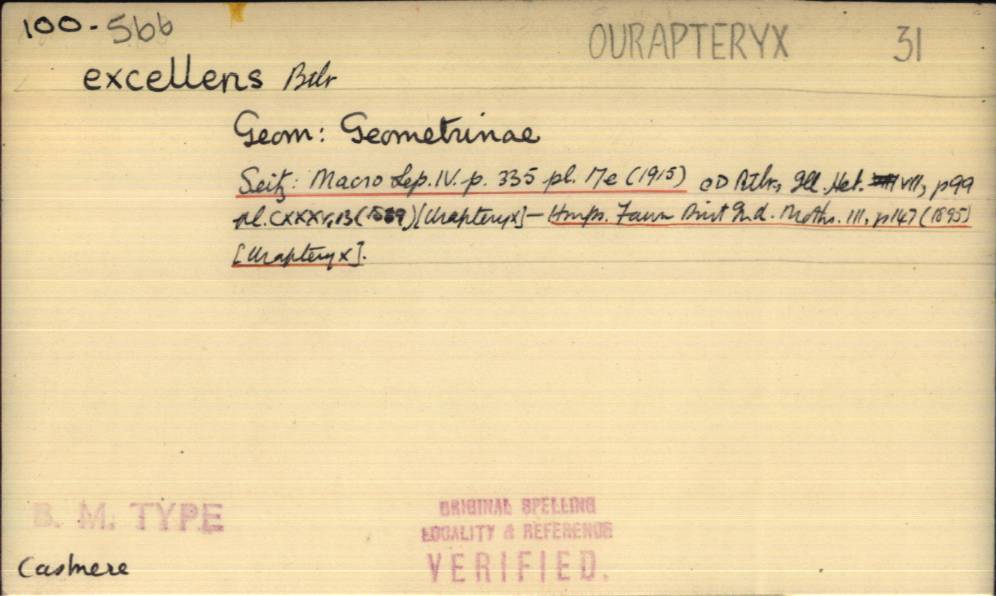 100-566
OURAPTERYX 31
excellens Btlr
Geom: Geometrinae
Seitz: Macro Lep. IV. p. 335 pl. 17e (1915) OD Btlr, Ill. Het. VII, p99
pl. CXXXV, 13 (1889) [Urapteryx] — Hmps. Faun Brit Ind. Moths. III, p147 (1895)
[Urapteryx].
B. M. TYPE
ORIGINAL SPELLING
LOCALITY & REFERENCE
VERIFIED.
Cashmere